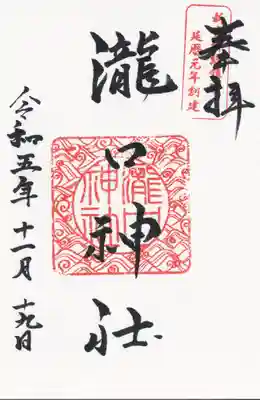 奉拝
延暦元年創建
瀧口神社
瀧口神社
令和五年十一月十九日